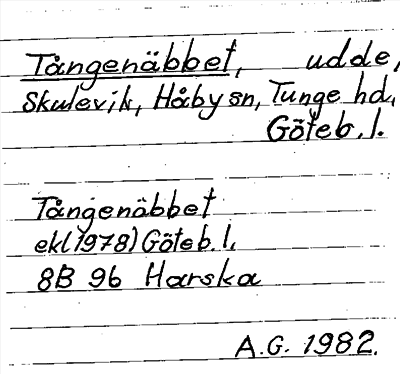 Tångenäbbet, udde,
Skulevik, Håby sn, Tunge hd,
Göteb. l.
Tångenäbbet
ekl(1978) Göteb. l.
8B 9b Harska
A.G. 1982.